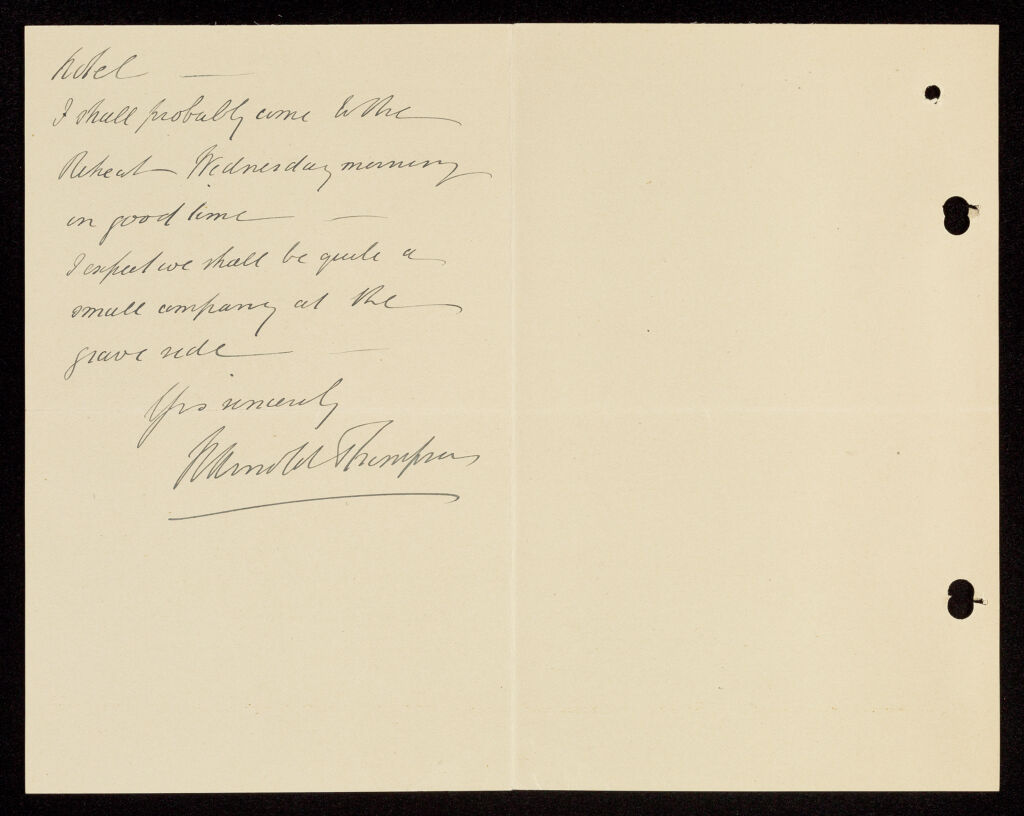 hotel —
I shall probably come to the
Retreat Wednesday morning
in good time —
I expect we shall be quite a
small company at the
grave side —
Yrs sincerely
Arnold Thompson